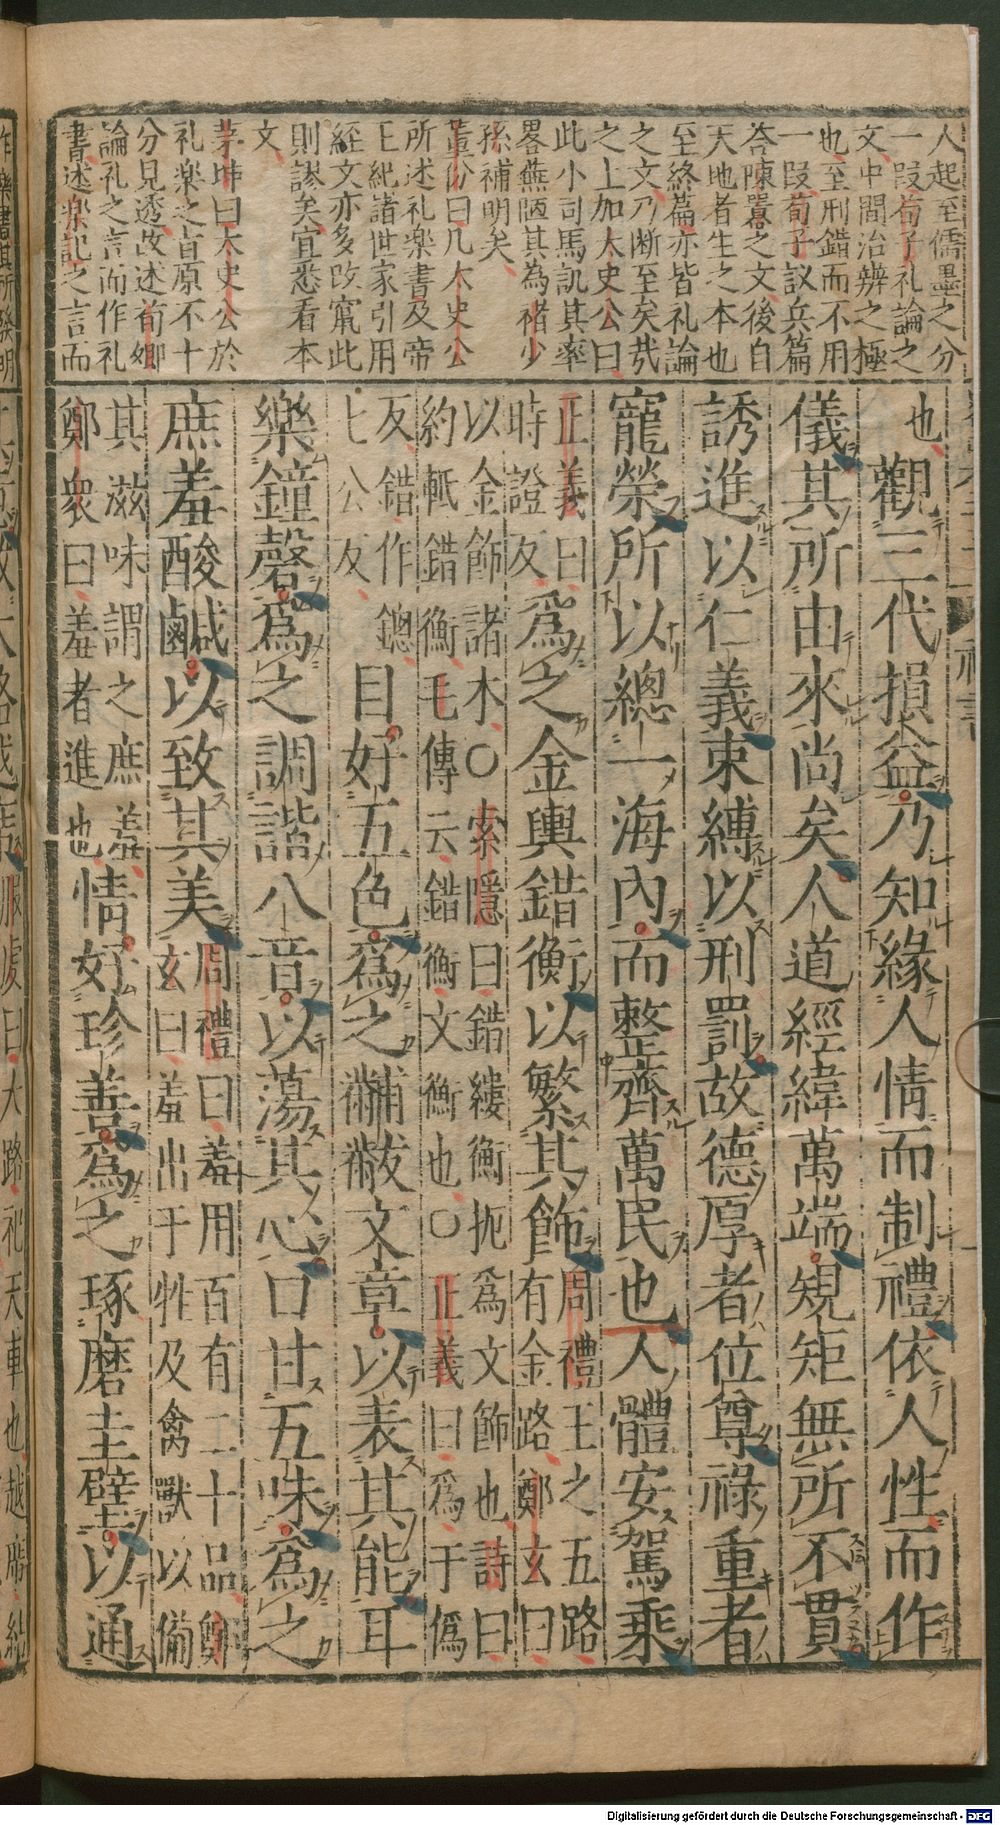 人起至儒墨之分
一段荀子礼論之
文中間治辨之極
也至刑錯而不用
一段荀子議兵篇
答陳囂之文後自
天地者生之本也
至終篇亦皆礼論
之文乃断至矣哉
之上加太史公曰
此小司馬訊其率
畧蕪陋其為褚少
孫補明矣
董份曰凡太史公
所述礼楽書及帝
王紀諸世家引用
経文亦多改竄此
則謬矣宜悉看本
文
茅坤曰太史公於
礼楽之旨原不十
分見透故述荀卿
論礼之言而作礼
書述楽記之言而
也觀三代損益乃知緣人情而制禮依人性而作
儀其所由來尚矣人道經緯萬端規矩無所不貫
誘進以仁義束縛以刑罰故德厚者位尊祿重者
寵榮所以總一海內而整齊萬民也人體安駕乘
正義曰
時證反
爲之金輿錯衡以繁其飾
周禮王之五路
有金路鄭玄曰
以金飾諸木○索隱曰錯縷衡扼爲文飾也詩曰
約軝錯衡毛傳云錯衡文衡也○正義曰爲于僞
反錯作鏓
七公反
目好五色爲之黼黻文章以表其能耳
樂鐘磬爲之調諧八音以蕩其心口甘五味爲之
庶羞酸鹹以致其美
周禮曰羞用百有二十品鄭
玄曰羞出于牲及禽獸以備
其滋味謂之庶羞
鄭衆曰羞者進也
情好珍善爲之琢磨圭璧以通
Digitalisierung gefördert durch die Deutsche Forschungsgemeinschaft - DFG